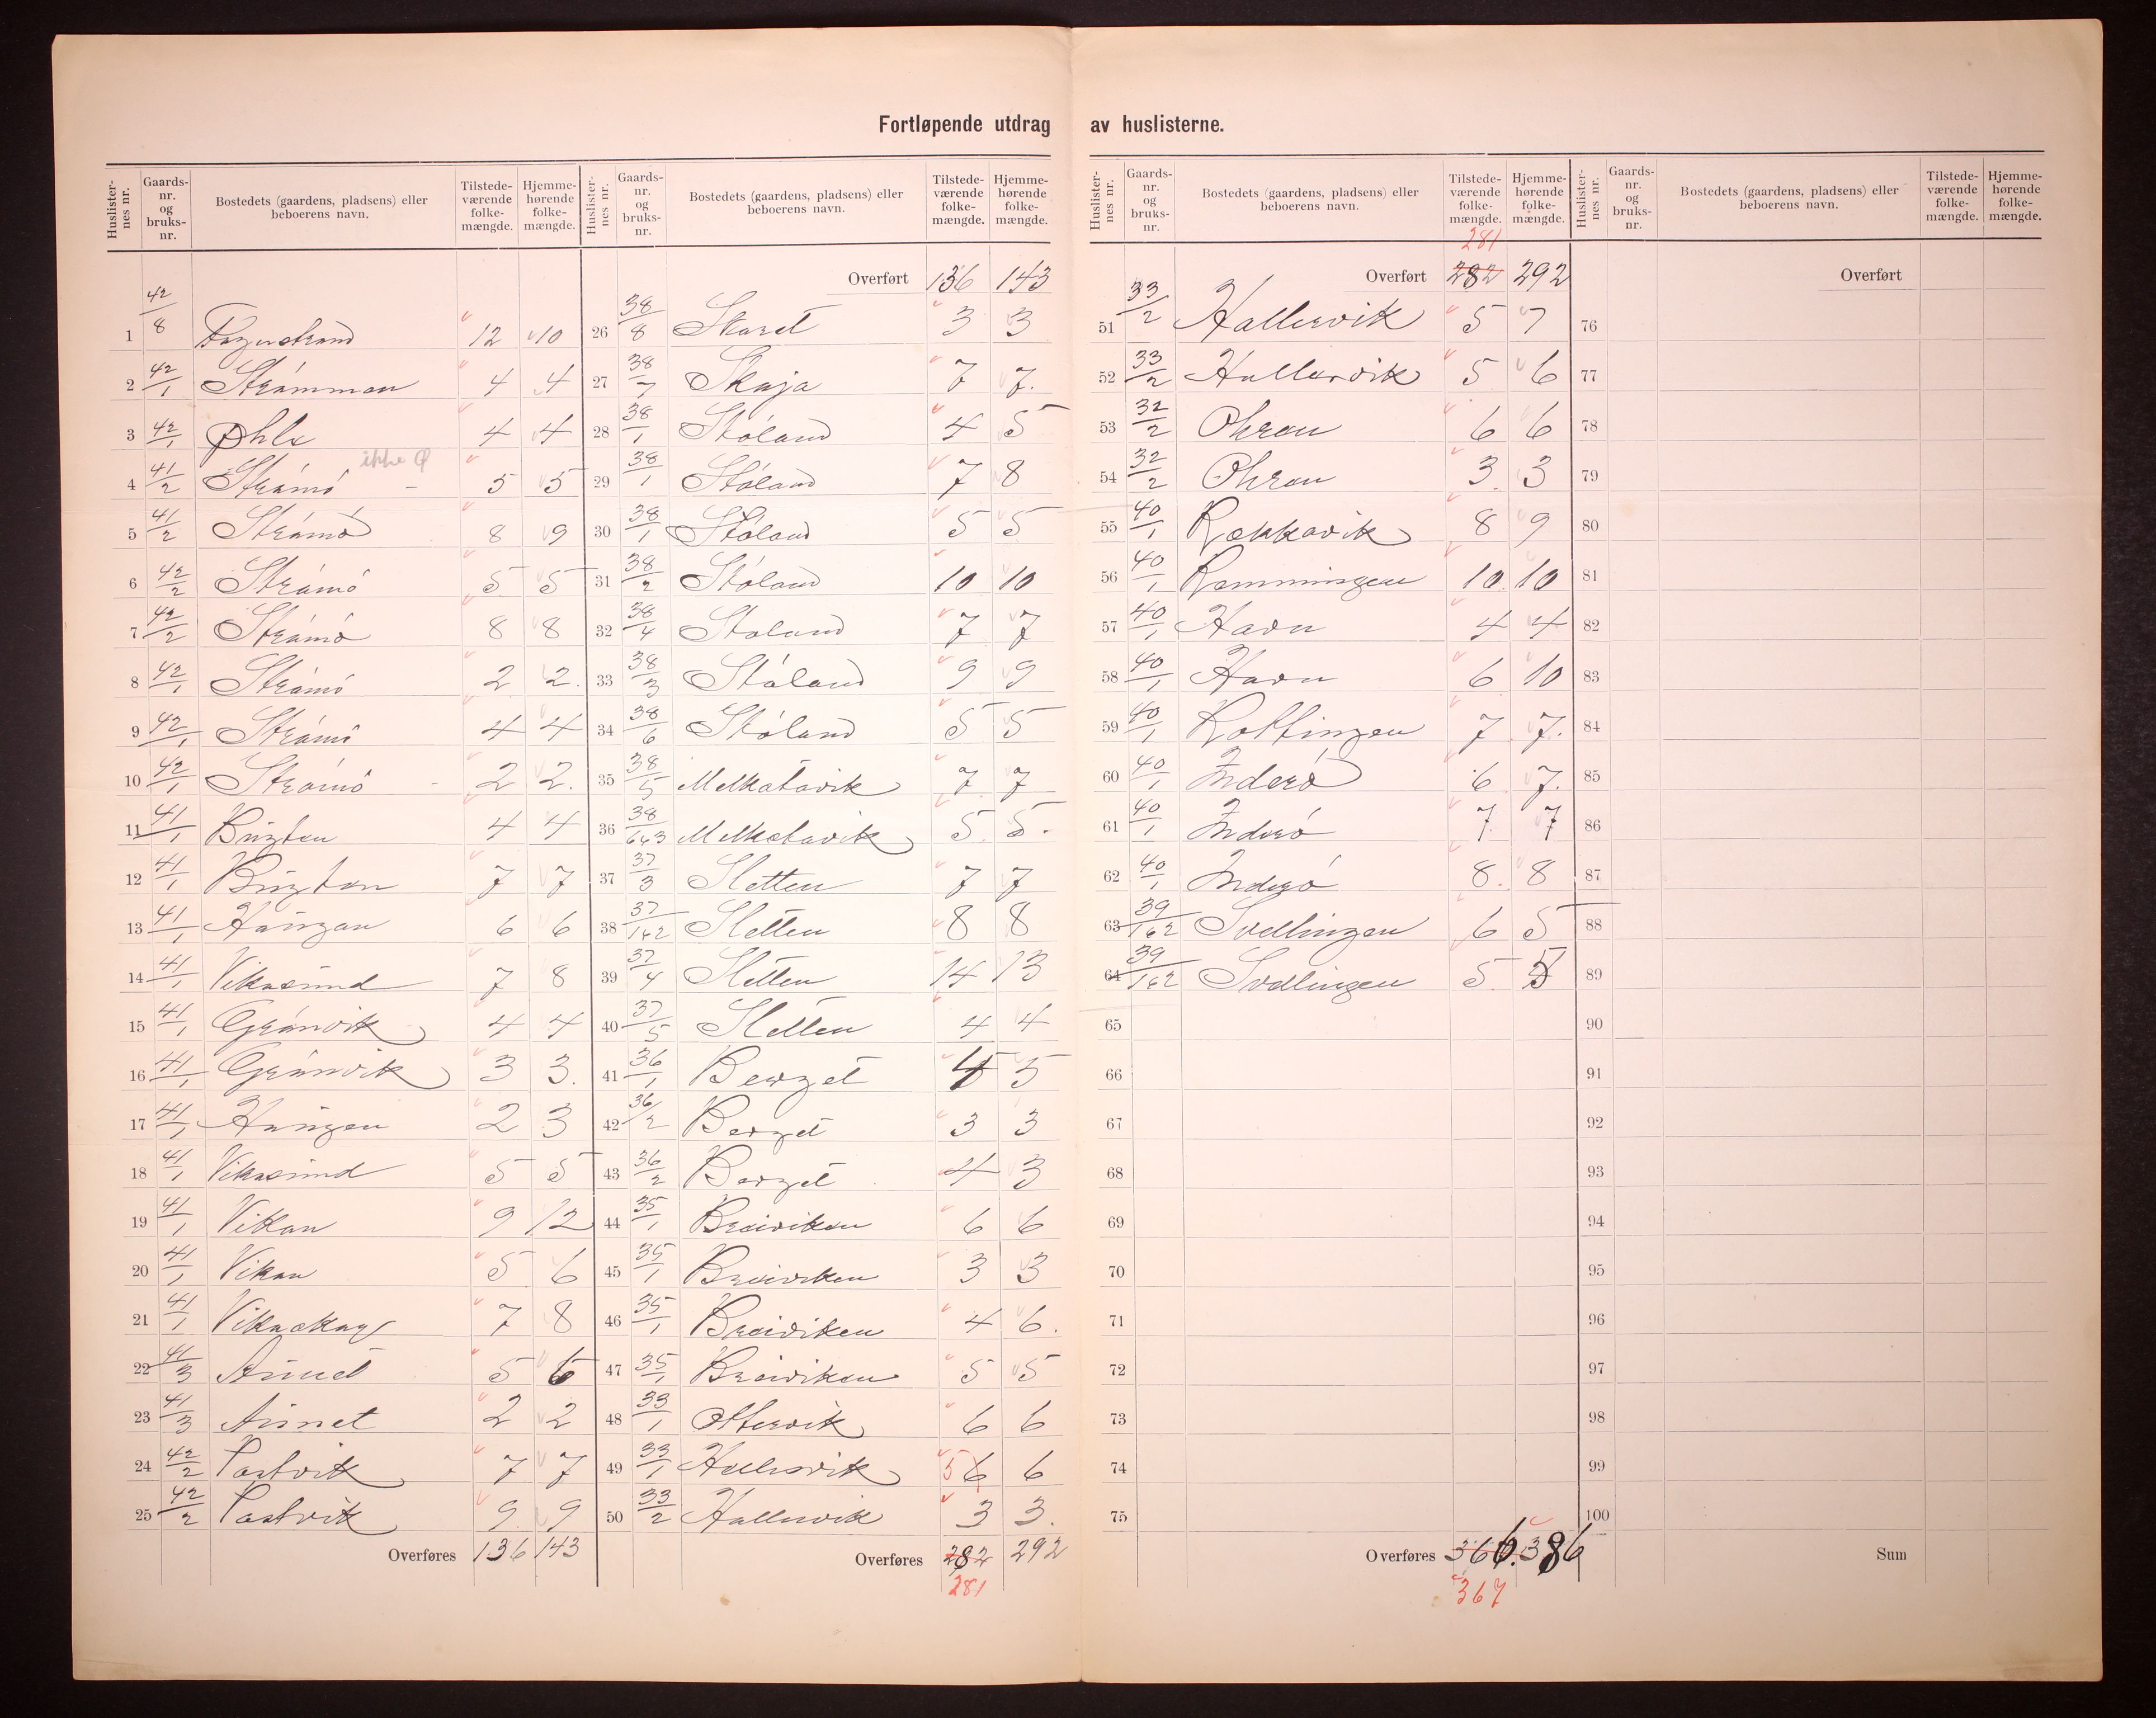 Fortløpende utdrag av huslisterne.
Huslister-nes nr. Gaards-nr. og bruks-nr. Bostedets (gaardens, pladsens) eller beboerens navn. Tilstede-værende folke-mængde. Hjemme-hørende folke-mængde.
1 42/8 Fagerstrand 12 10
2 42/1 Strømmen 4 4
3 42/1 Øhle 4 4
ikke Ø
4 41/2 Strømø 5 5
5 41/2 Strømø 8 9
6 42/2 Strømø 5 5
7 42/2 Strømø 8 8
8 42/1 Strømø 2 2.
9 42/1 Strømø 4 4
10 42/1 Strømø - 2 2.
11 41/1 Bugten 4 4
12 41/1 Bugten 7 7
13 41/1 Haugan 6 6
14 41/1 Vikasund 7 8
15 41/1 Grønvik 4 4
16 41/1 Grønvik 3 3.
17 41/1 Haugen 2 3
18 41/1 Vikasund 5 5
19 41/1 Vikan 9 12
20 41/1 Vikan 5 6
21 41/1 Vikaskag 7 8
22 41/3 Aunet 5 6
23 41/3 Aunet 2 2
24 42/2 Vastvik 7 7
25 42/2 Vastvik 9 9
Overføres 136 143
Huslister-nes nr. Gaards-nr. og bruks-nr. Bostedets (gaardens, pladsens) eller beboerens navn. Tilstede-værende folke-mængde. Hjemme-hørende folke-mængde.
Overført 136 143
26 38/8 Skaret 3 3
27 38/7 Skaja 7 7.
28 38/1 Støland 4 5
29 38/1 Støland 7 8
30 38/1 Støland 5 5
31 38/2 Støland 10 10
32 38/4 Støland 7 7
33 38/3 Støland 9 9
34 38/6 Støland 5 5
35 38/5 Melkstavik 7 7
36 38/6&3 Melkstavik 5 5.
37 37/3 Sletten 7 7
38 37/1&2 Sletten 8 8
39 37/4 Sletten 14 13
40 37/5 Sletten 4 4
41 36/1 Berget 4 5
42 36/2 Berget 3 3
43 36/2 Berget 4 3
44 35/1 Breiviken 6 6
45 35/1 Breiviken 3 3
46 35/1 Breiviken 4 6.
47 35/1 Breiviken 5 5
48 33/1 Ottervik 6 6
49 33/1 Hallervik 5 6 6
50 33/2 Hallervik 3 3.
Overføres 282 292
281
Huslister-nes nr. Gaards-nr. og bruks-nr. Bostedets (gaardens, pladsens) eller beboerens navn. Tilstede-værende folke-mængde. Hjemme-hørende folke-mængde.
281
Overført 282 292
51 33/2 Hallervik 5 7
52 33/2 Hallervik 5 6
53 32/2 Ohren 6 6
54 32/2 Ohren 3 3
55 40/1 Rækkavik 8 9
56 40/1 Remmingen 10 10
57 40/1 Havn 4 4
58 40/1 Havn 6 10
59 40/1 Rottingen 7 7.
60 40/1 Inderø 6 7.
61 40/1 Inderø 7. 7
62 40/1 Inderø 8. 8
63 39/1&2 Svellingen 6 5
64 39/1&2 Svellingen 5. 5
65
66
67
68
69
70
71
72
73
74
75
Overføres 366. 386
367
Huslister-nes nr. Gaards-nr. og bruks-nr. Bostedets (gaardens, pladsens) eller beboerens navn. Tilstede-værende folke-mængde. Hjemme-hørende folke-mængde.
Overført
76
77
78
79
80
81
82
83
84
85
86
87
88
89
90
91
92
93
94
95
96
97
98
99
100
Sum